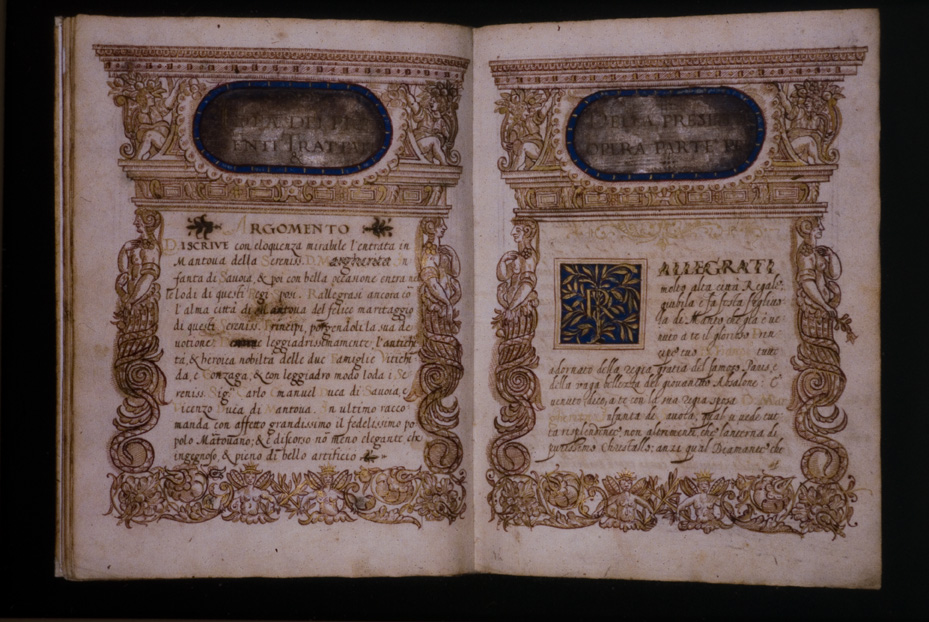 ENTI TRATTATI
ARGOMENTO
DISCRIVE con eloquenza mirabile l'entrata in
Mantova della Sereniss. D. Margherita In-
fanta di Savoia, & poi con bella occasione entra ne
le lodi di questi Regi Sposi. Rallegrasi ancora cō
l'alma città di Mantova del felice maritaggio
di questi Sereniss. Principi, porgendoli la sua de
votione; leggiadrissimamente l'antichi
tà, & heroica nobiltà delle due Famiglie Vitichi
da, e Gonzaga, & con leggiadro modo loda i Se-
reniss. Sig.ri Carlo Emanuel Duca di Savoia, e
Vicenzo Duca di Mantova. In ultimo racco-
manda con affetto grandissimo il fedelissimo po
polo Mātovano; & è discorso nō meno elegante che
ingegnoso, & pieno di bello artificio
DELLA PRESENTE
OPERA PARTE
RALLEGRATI
molto alta città Regale,
giubila e fa festa figliuo-
lla di Manto che già è ve-
nuto a te il glorioso Prin-
cipe tuo Francesco tutto
adornato della regia gratia del famoso Paris, e
della vaga bellezza del giovanetto Absalone: E'
venuto (dico) a te con la sua regia sposa D. Mar
gherita Infanta di Savoia, qual si vede tut-
ta risplendente, non altrimenti, che lanterna di
purissimo Christallo; anzi qual Diamante, che